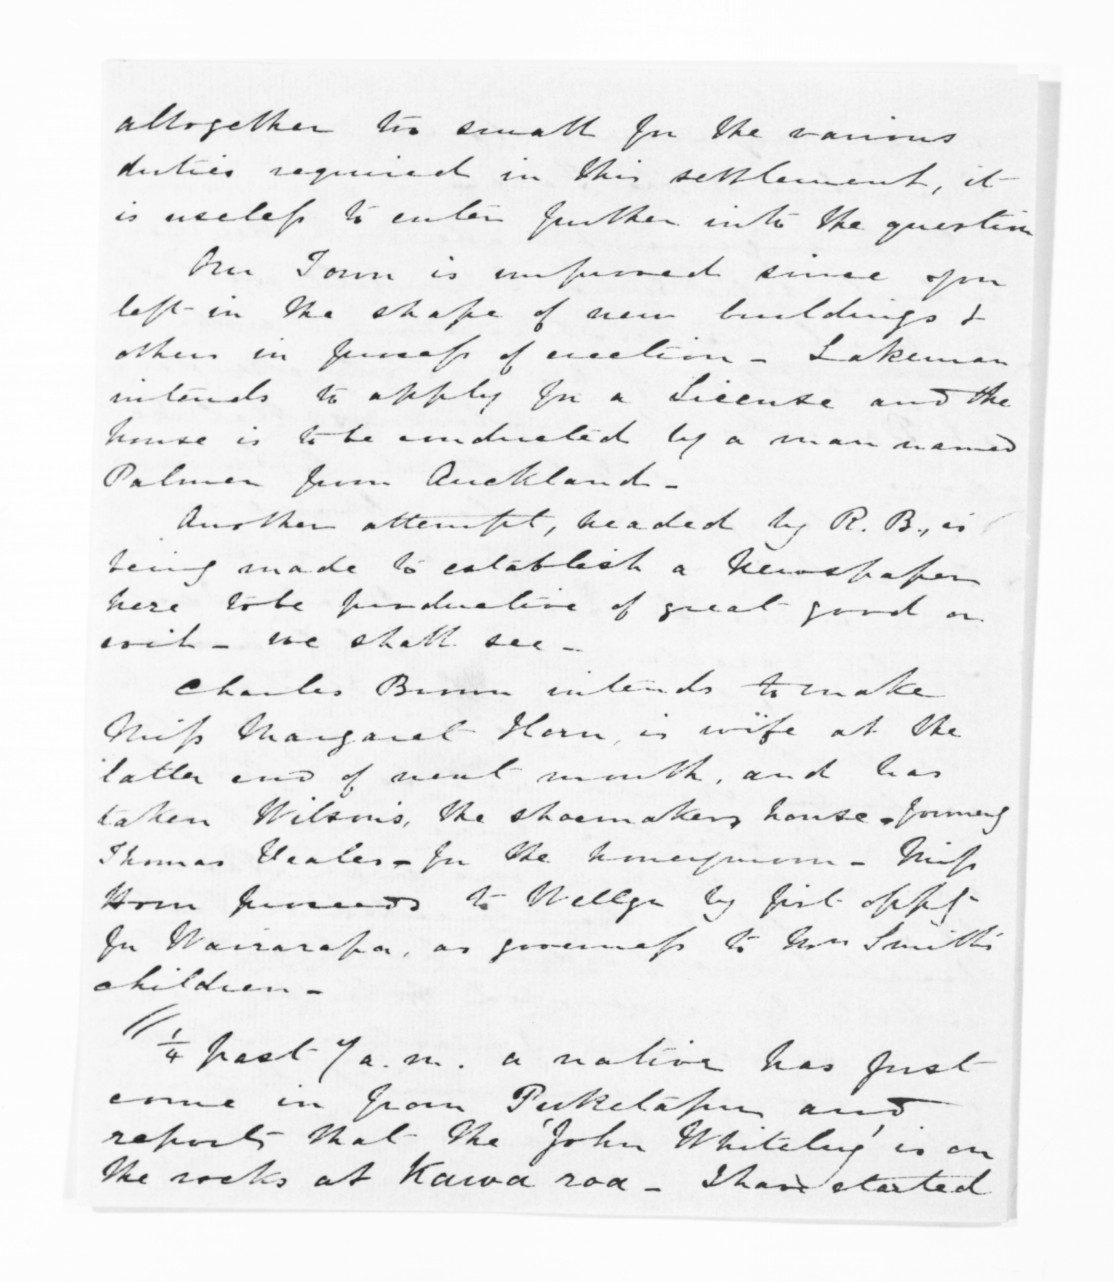 altogether too small for the various
duties required in this settlement, it
is useless to enter further into the question
Our Town is improved since you
left in the shape of new buildings &
others in process of erection - Lakeman
intends to apply for a License and the
house is to be conducted by a man named
Palmer from Auckland -
Another attempt, headed by R. B., is
being made to establish a Newspaper
here to be productive of great good or
evil - we shall see -
Charles Brown intends to make
Miss Margaret Horn, is wife at the
latter end of next month, and has
taken Wilson's, the shoemakers house - formerly
Thomas Veales - for the honeymoon - Miss
Horn proceeds to Wellgn by first oppy
for Wairarapa, as governess to Mrs Smith's
children -
1/4 past 7 a.m. a native has just
come in from Puketapu and
reports that the 'John Whiteley' is on
the rocks at Kawa roa - I have started